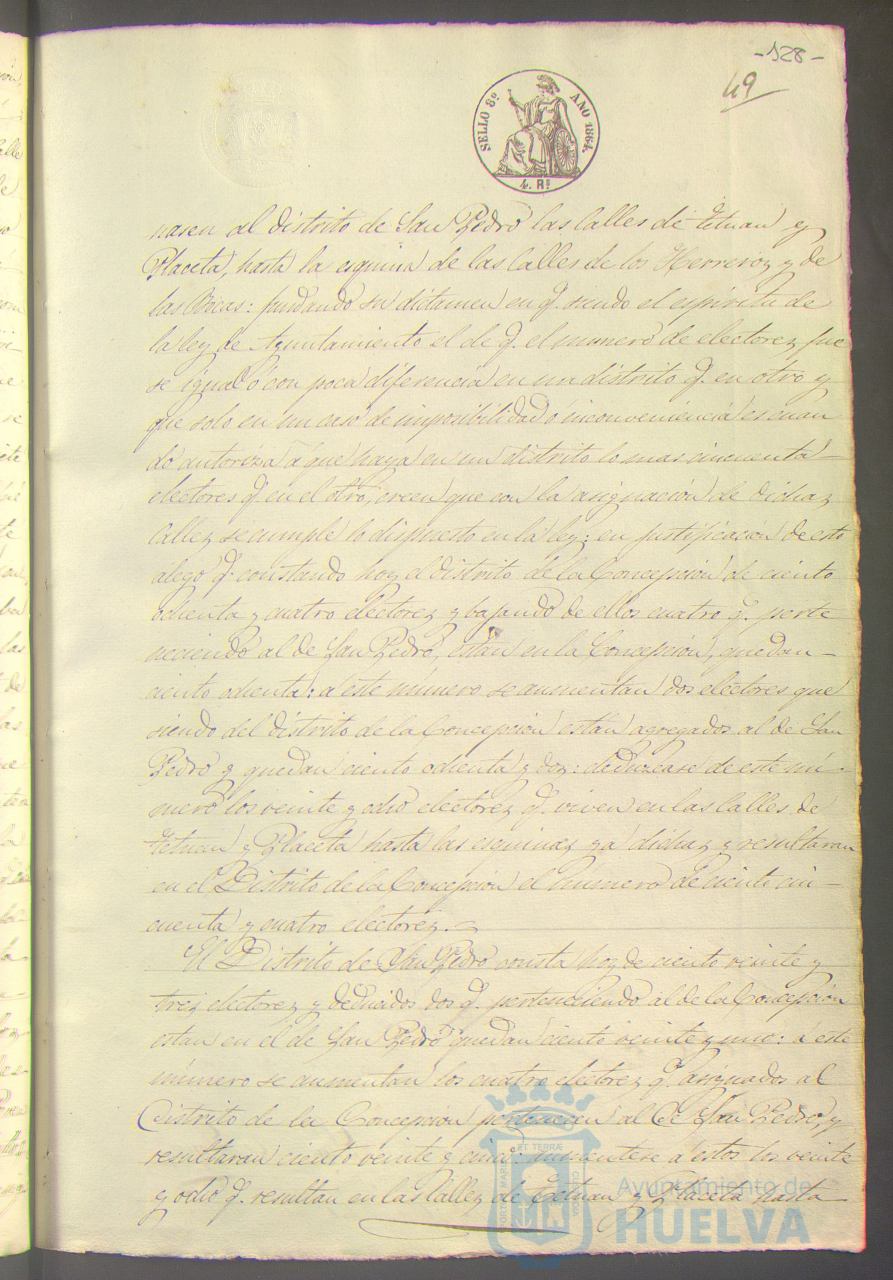 -128-
49
SELLO 8º AÑO 1864.
4. Rs
nasen al distrito de San Pedro las Calles de Tetuan y
Placeta, hasta la esquina de las Calles de los Herreroz y de
las Bocas: fundando su dictamen en q. siendo el espiritu de
la ley de Ayuntamiento el de q. el numero de electorez fue
se igual ó con poca diferencia en un distrito q. en otro y
que solo en un caso de imposibilidad o inconveniencia es cuan
do autoriza á que haya en un distrito lo mas cincuenta
electores q. en el otro, creen que con la asignación de dichaz
Callez se cumple lo dispuesto en la ley: en justificación de esto
alegó q. constando hoy el distrito de la Concepción de ciento
ochenta y cuatro electorez y bajando de ellos cuatro q. perte
neciendo al de San Pedro, están en la Concepción, quedan
ciento ochenta: á este número se aumentan dos electores que
siendo del distrito de la Concepción están agregados al de San
Pedro y quedan ciento ochenta y dos: deduzcase de este nú-
mero los veinte y ocho electorez q. viven en las Calles de
Tetuan y Placeta hasta las esquinaz ya dichaz y resultaran
en el Distrito de la Concepción el número de ciento cin-
cuenta y cuatro electorez.
El Distrito de San Pedro consta hoy de ciento veinte y
trez electorez y deducidos dos q. perteneciendo al de la Concepción
estan en el de San Pedro quedan ciento veinte y uno: á este
número se aumentan los cuatro electorez q. asignados al
Distrito de la Concepción pertenecen al de San Pedro, y
resultaran ciento veinte y cinco: aumentese á estos los veinte
y ocho q. resultan en las Callez de Tetuan y Placeta hasta
PORTUS MARIS ET TERRÆ CUSTODIA
Ayuntamiento de
HUELVA